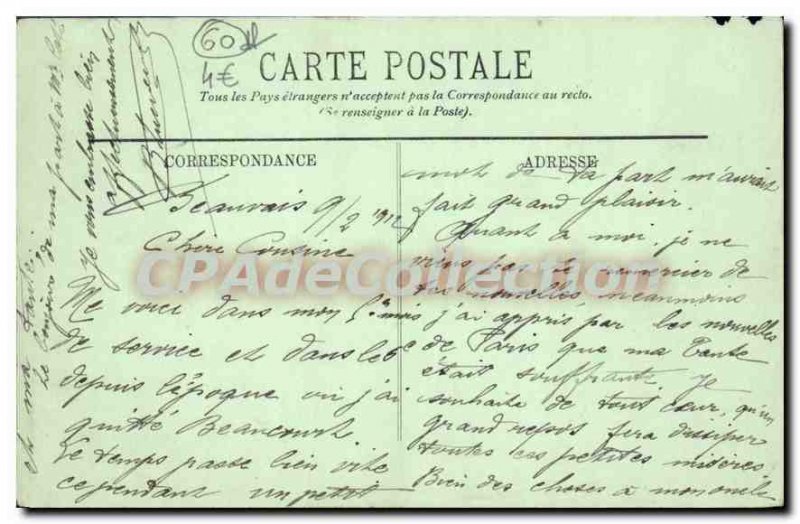 60
4€
CARTE POSTALE
Tous les Pays étrangers n'acceptent pas la Correspondance au recto.
(Se renseigner à la Poste).
CORRESPONDANCE
ADRESSE
Beauvais 9/2 1912
Chère Cousine
Me voici dans mon 5e mois
de service et dans le 6e
depuis l'époque où j'ai
quitté Beaucourt.
Le temps passe bien vite
cependant un petit
mot de ta part m'aurait
fait grand plaisir.
Quant à moi, je ne
puis pas te remercier de
tes nouvelles, néanmoins
j'ai appris par les nouvelles
de Paris que ma Tante
était souffrante. Je
souhaite de tout cœur, qu'un
grand repos fera dissiper
toutes ces petites misères.
Bien des choses à mon oncle
et ma tante.
Le bonjour de ma part à Mr
Je vous embrasse bien
affectueusement
CPAdeCollection